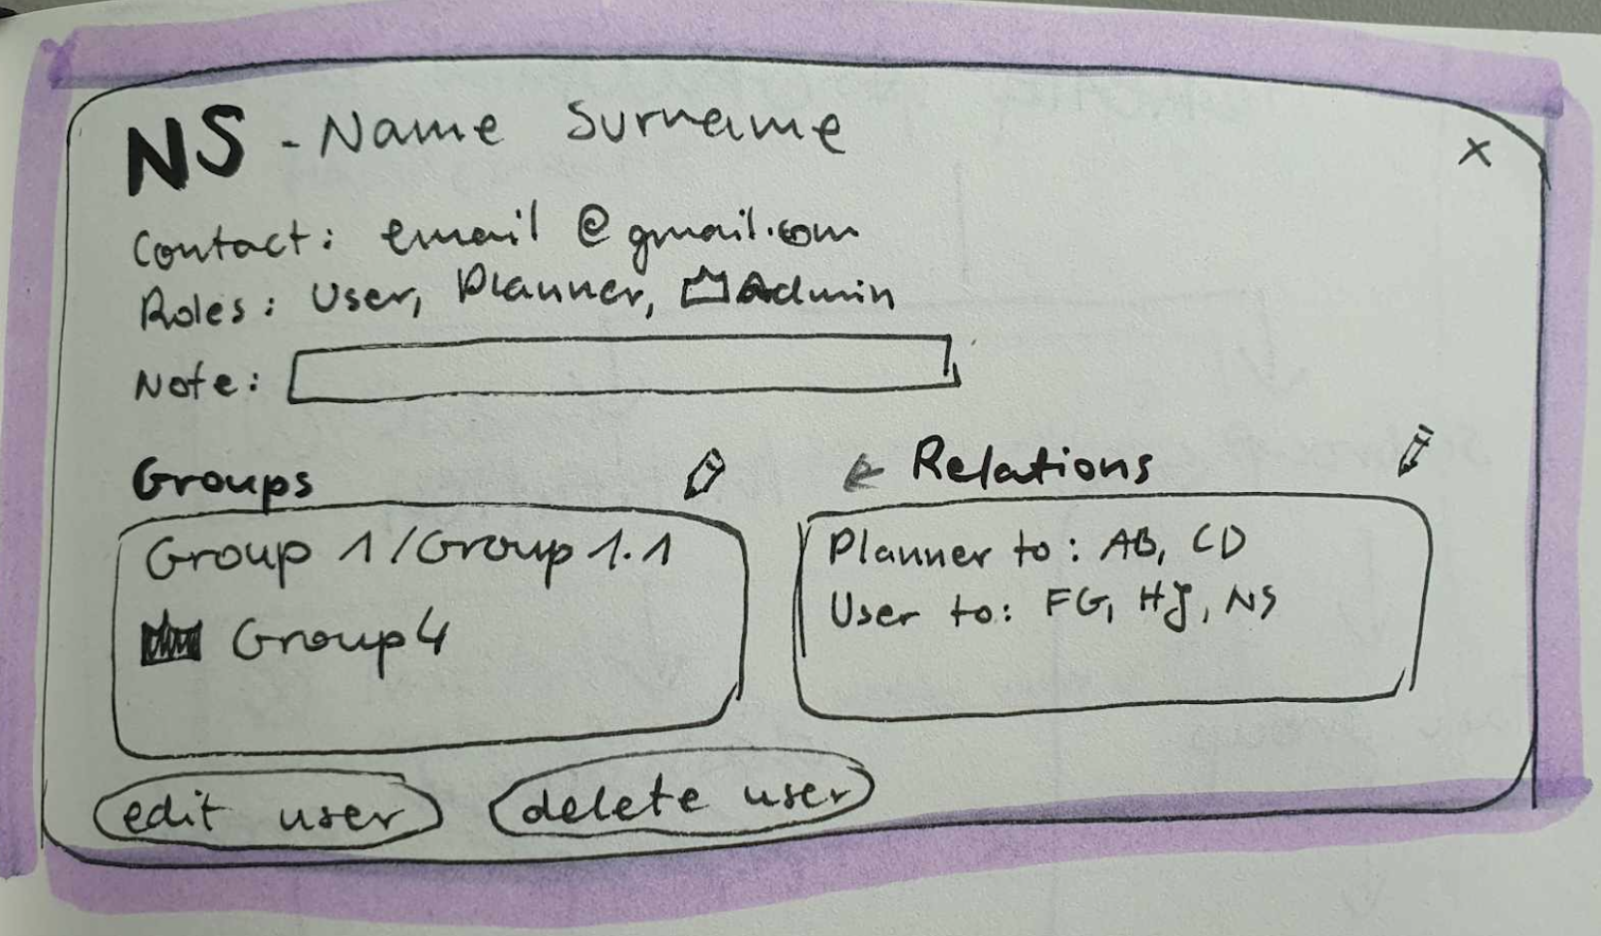 NS - Name Surname
x
Contact: email @gmail.com
Roles: User, Planner, Admin
Note:
Groups
Group 1/Group 1.1
Group 4
Relations
Planner to: AB, CD
User to: FG, HJ, NS
edit user
delete user